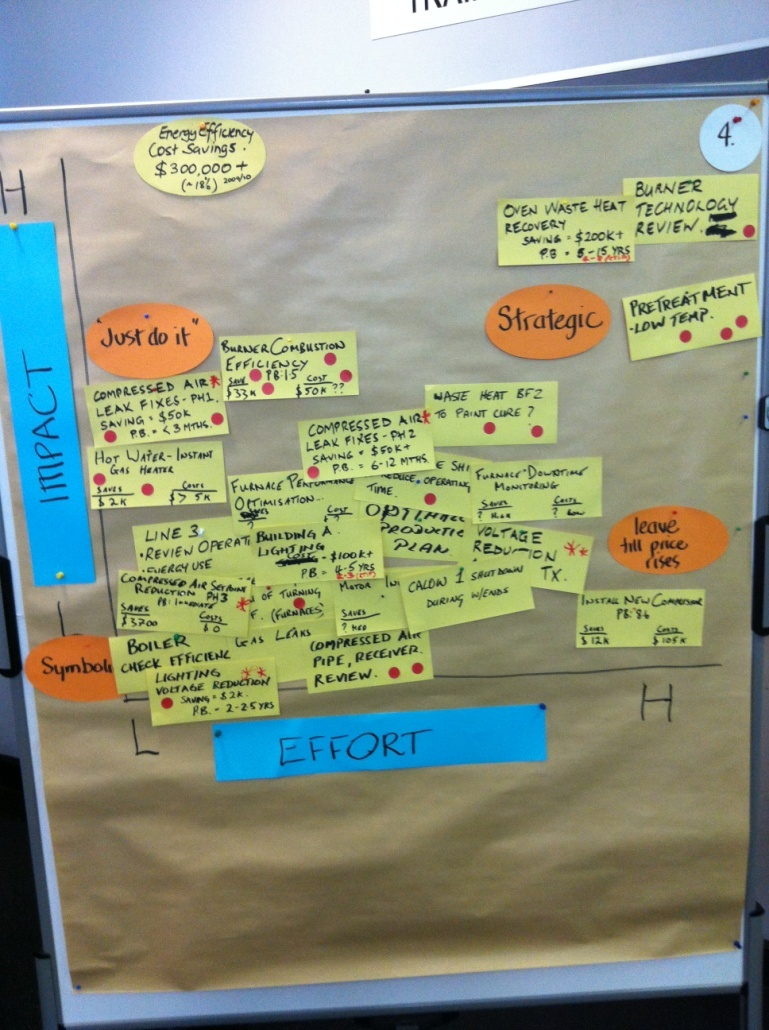 Energy Efficiency
Cost Savings.
$300,000+
(~18%) 2009/10
4.
H
IMPACT
L
OVEN WASTE HEAT
RECOVERY
SAVING = $200K+
P.B = 5-15 YRS
BURNER
TECHNOLOGY
REVIEW.
"Just do it"
Strategic
PRETREATMENT
-LOW TEMP.
BURNER COMBUSTION
EFFICIENCY
PB 1.5
SAVE COST
$33K $50K ??
COMPRESSED AIR *
LEAK FIXES - PH1.
SAVING = $50K
P.B. = <3 MTHS.
WASTE HEAT BF2
TO PAINT CURE?
COMPRESSED AIR *
LEAK FIXES - PH2
SAVING = $50K+
P.B. = 6-12 MTHS.
HOT WATER - INSTANT
GAS HEATER
SAVES COSTS
$2K $75K
FURNACE PERFORMANCE
OPTIMISATION...
REDUCE OPERATING
TIME.
FURNACE DOWNTIME
MONITORING
SAVES COSTS
PRODUCTIO
PLAN
LINE 3
• REVIEW OPERATI
ENERGY USE
BUILDING A
LIGHTING
$100K+
PB = 4-5 YRS
VOLTAGE
REDUCTION **
TX.
leave
till price
rises
COMPRESSED AIR SETPOINT
REDUCTION PH3
SAVES COSTS
$3700 $0
OF TURNING
(FURNACES)
GAS LEAKS
MOTOR
SAVES
CALDW 1 SHUTDOWN
DURING W/ENDS
INSTALL NEW COMPRESSOR
PB: 8.6
SAVES COSTS
$12K $105K
Symbol
BOILER
CHECK EFFICIENC
COMPRESSED AIR
PIPE, RECEIVER.
REVIEW.
LIGHTING **
VOLTAGE REDUCTION
SAVING = $2K.
P.B. - 2-2.5 YRS
L
EFFORT
H